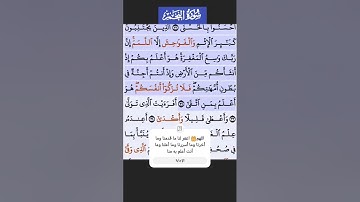 سُورَةُ النَّجْمِ
أَحْسَنُوا بِالْحُسْنَى ۝ الَّذِينَ يَجْتَنِبُونَ
كَبَٰٓئِرَ الْإِثْمِ وَالْفَوَٰحِشَ إِلَّا اللَّمَمَ إِنَّ
رَبَّكَ وَٰسِعُ الْمَغْفِرَةِ هُوَ أَعْلَمُ بِكُمْ إِذْ
أَنشَأَكُم مِّنَ الْأَرْضِ وَإِذْ أَنتُمْ أَجِنَّةٌ فِي
بُطُونِ أُمَّهَٰتِكُمْ فَلَا تُزَكُّوٓا أَنفُسَكُمْ هُوَ
أَعْلَمُ بِمَنِ اتَّقَىٰٓ ۝ أَفَرَءَيْتَ الَّذِي تَوَلَّىٰ
۝ وَأَعْطَىٰ قَلِيلًا وَأَكْدَىٰٓ ۝ أَعِندَهُۥ
عِلْمُ
يُنَبَّأْ بِمَا
اللهم اغفر لنا ما قدمنا وما
أخرنا وما أسررنا وما أعلنا وما
أنت أعلم به منا
فِي صُحُفِ
الَّذِي وَفَّىٰٓ